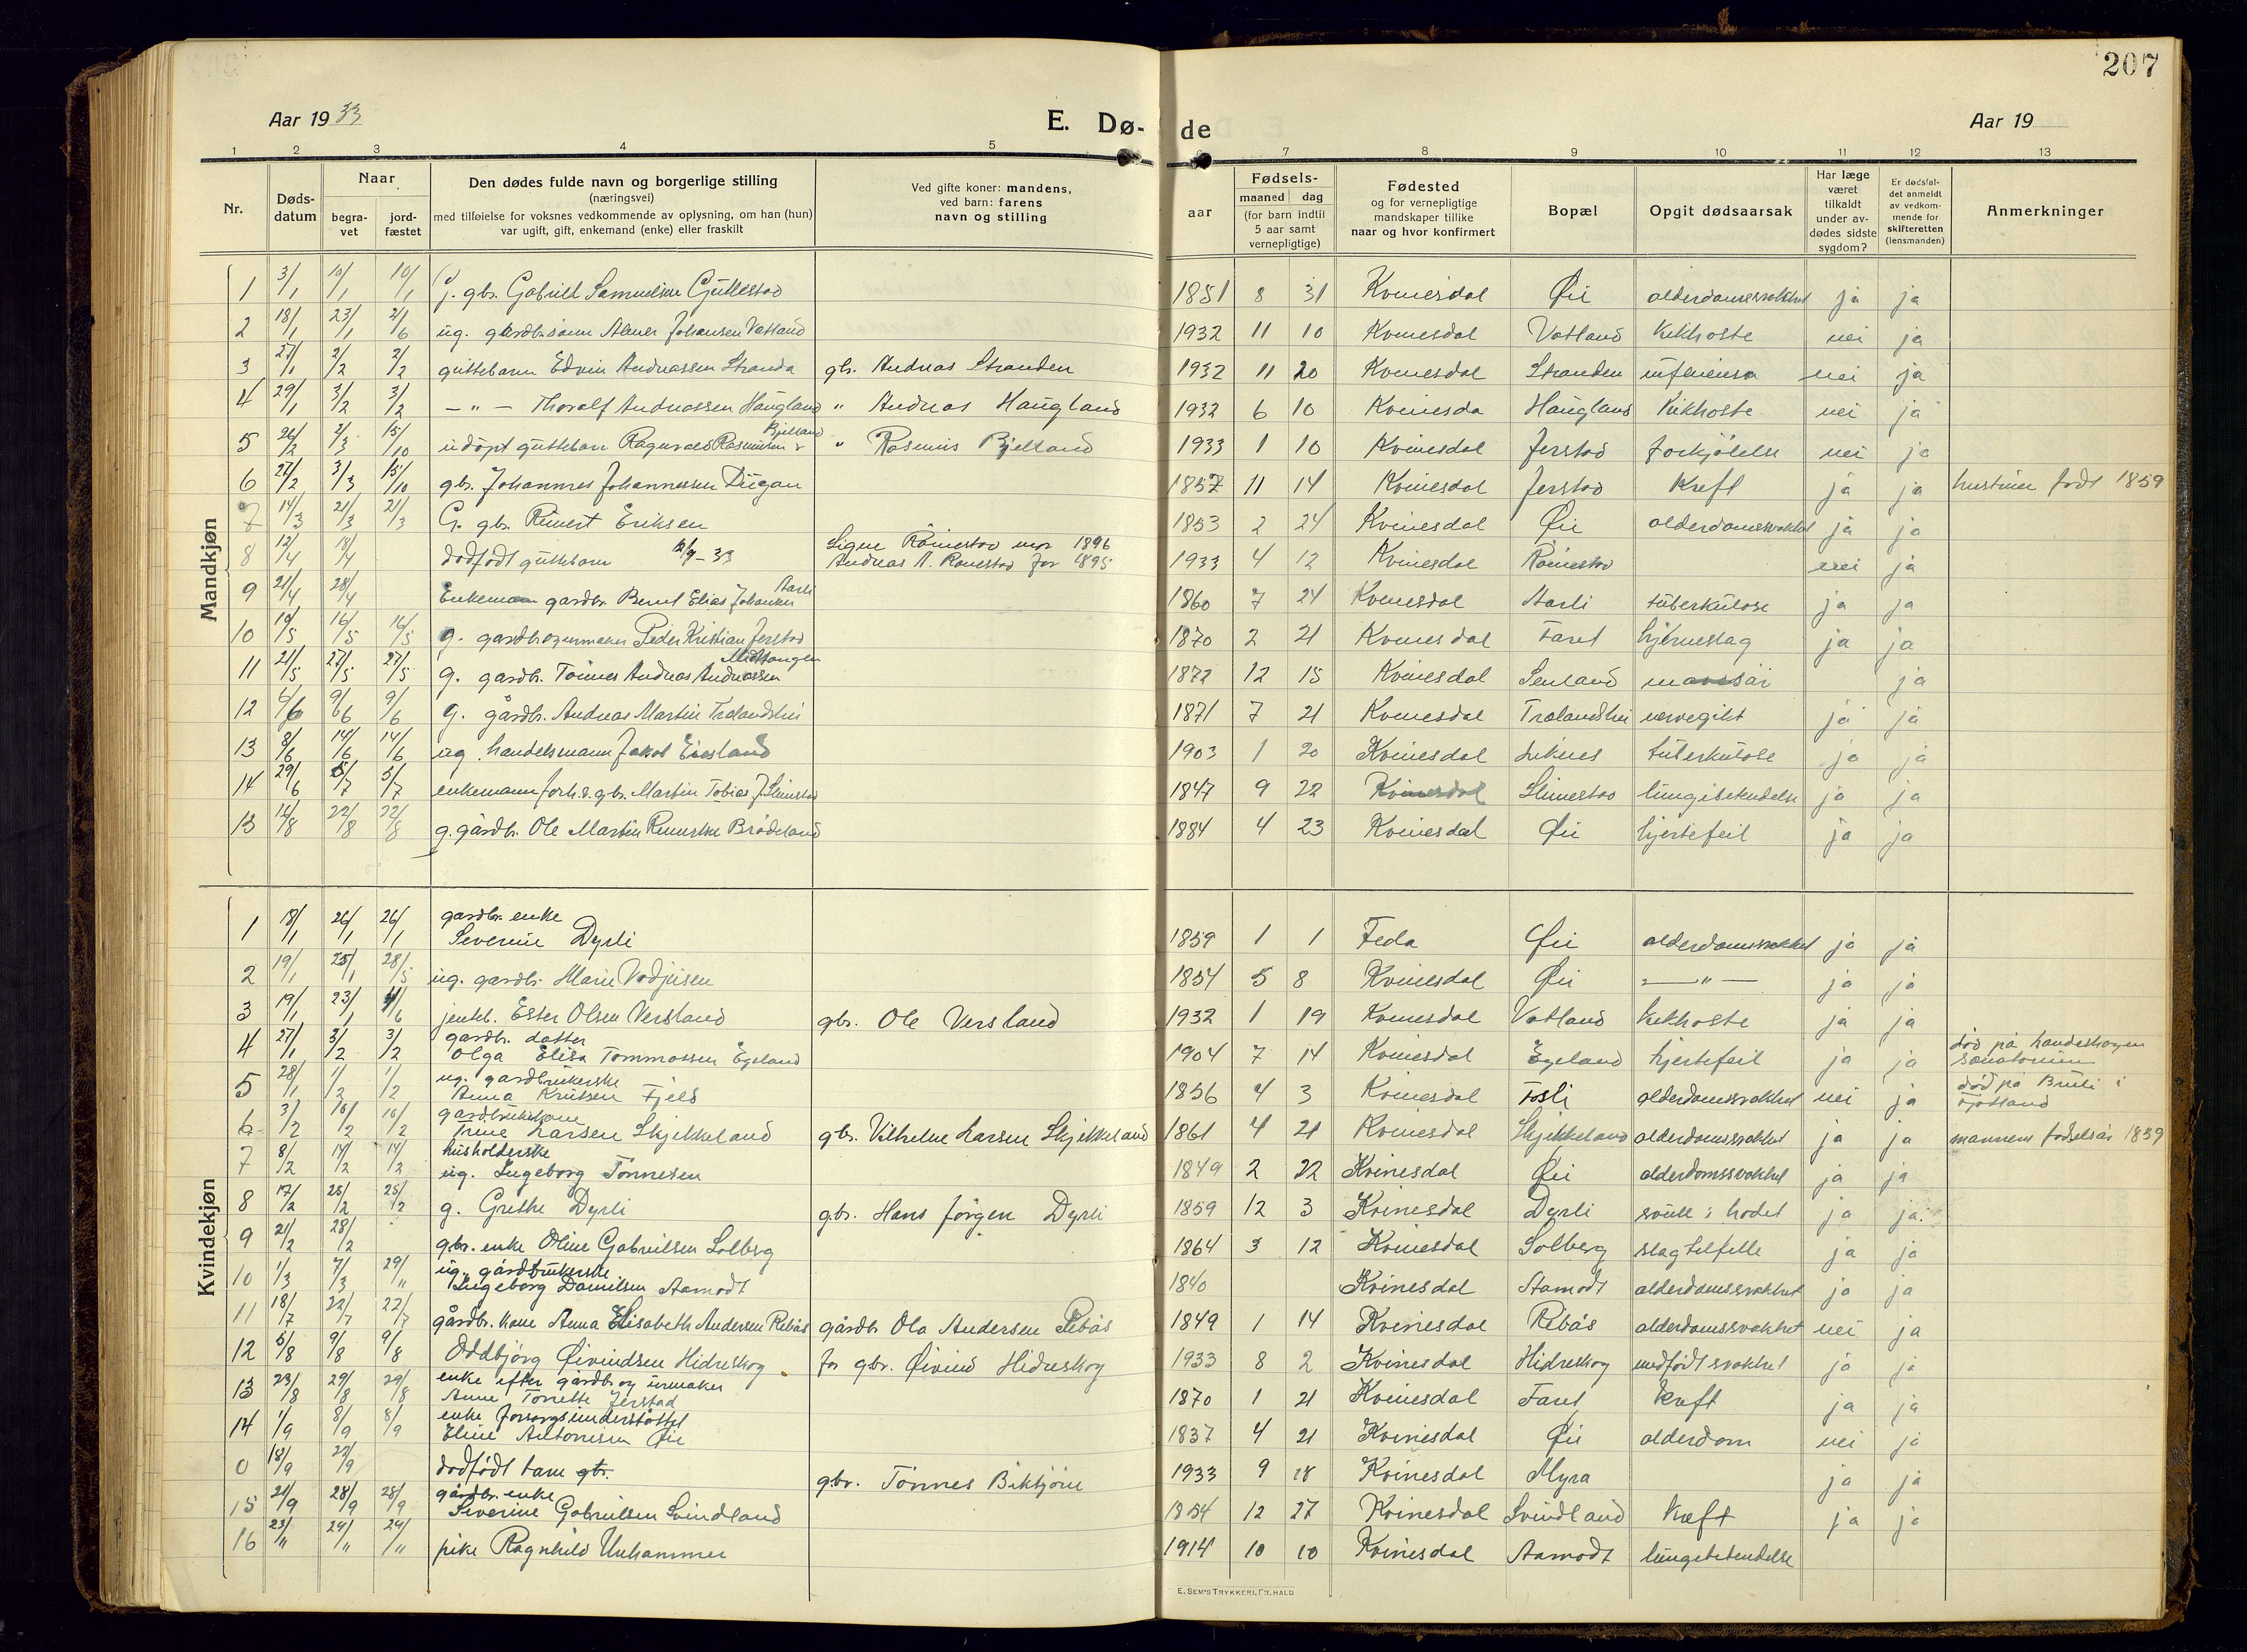 207
Aar 1933
E. Dø-
de
Aar 19
1 2 3 4 5 7 8 9 10 11 12 13
Nr.
Døds-
datum
Naar
begra-
vet
jord-
fæstet
Den dødes fulde navn og borgerlige stilling
(næringsvei)
med tilføielse for voksnes vedkommende av oplysning, om han (hun)
var ugift, gift, enkemand (enke) eller fraskilt
Ved gifte koner: mandens,
ved barn: farens
navn og stilling
aar
Fødsels-
maaned dag
(for barn indtil
5 aar samt
vernepligtige)
Fødested
og for vernepligtige
mandskaper tillike
naar og hvor konfirmert
Bopæl
Opgit dødsaarsak
Har læge
været
tilkaldt
under av-
dødes sidste
sygdom?
Er dødsfal-
det anmeldt
av vedkom-
mende for
skifteretten
(lensmanden)
Anmerkninger
Mandkjøn
1 3/1 10/1 10/1 G. gbr. Gabriel Samuelsen Gullestad 1851 8 31 Kvinesdal Øie alderdomssvakhet ja ja
2 18/1 23/1 ug. gardbr.sønn Johansen Vatland 1932 11 10 Kvinesdal Vatland kikhoste nei ja
3 27/1 2/2 2/2 guttebarn Edvin Andreassen Stranda gb. Andreas Stranden 1932 11 20 Kvinesdal Stranden influensa nei ja
4 29/1 3/2 3/2 — " — Thoralf Andreassen Haugland " Andreas Haugland 1932 6 10 Kvinesdal Haugland kikhoste nei ja
5 26/2 2/3 15/10 udøpt guttebarn Ragnvald Rasmussen Bjelland " Rasmus Bjelland 1933 1 10 Kvinesdal Jerstad forkjølelse nei ja
6 27/2 3/3 15/10 gb. Johannes Johannessen Dugan 1857 11 14 Kvinesdal Jerstad Kreft ja ja hustruen født 1859
7 14/3 21/3 21/3 G. gb. Reinert Eriksen 1853 2 24 Kvinesdal Øie alderdomssvakhet ja ja
8 12/4 18/4 dødfødt guttebarn 12/4-33 Signe Røinestad mor 1896
Andreas A. Rønestad far 1895 1933 4 12 Kvinesdal Røinestad nei ja
9 21/4 28/4 Enkemann gardbr. Bernt Elias Johansen Aarli 1860 7 24 Kvinesdal Aarli tuberkulose ja ja
10 10/5 16/5 16/5 g. gardbr og urmaker Peder Kristian Jerstad 1870 2 21 Kvinesdal Faret hjerneslag ja ja
11 21/5 27/5 27/5 g. gardb. Tønnes Andreas Andreassen 1872 12 15 Kvinesdal Senland mavesår ja
12 4/6 9/6 9/6 g. gårdb. Andreas Martin Tralandshei 1871 7 21 Kvinesdal Tralandshei nervegikt ja ja
13 8/6 14/6 14/6 ug. handelsmann Jakob Eiesland 1903 1 20 Kvinesdal Liknes tuberkulose ja ja
14 29/6 5/7 5/7 enkemann forh.v. gb. Martin Tobias J. Slimestad 1847 9 22 Kvinesdal Slimestad lungebetendelse ja ja
15 16/8 22/8 22/8 g. gårdb. Ole Martin Brådeland 1884 4 23 Kvinesdal Øie hjertefeil ja ja
Kvindekjøn
1 18/1 26/1 26/1 gardbr. enke
Severine Dyrli 1859 1 1 Feda Øie alderdomssvakhet ja ja
2 19/1 25/1 28/5 ug. gardb. Marie 1854 5 8 Kvinesdal Øie — " — ja ja
3 19/1 23/1 jenteb. Ester Olsen Versland gbr. Ole Versland 1932 1 19 Kvinesdal Vatland kikhoste ja ja
4 27/1 3/2 3/2 gardbr. datter
Olga Elisa Tommassen Egeland 1904 7 14 Kvinesdal Egeland hjertefeil ja ja død på Landeskogen
sanatorium
5 28/1 1/2 1/2 ug. gardbrukerske
Anna Knutsen Fjeld 1856 4 3 Kvinesdal Fosli alderdomssvakhet nei ja død på i
Fjotland
6 3/2 10/2 10/2 gardbrukerkone
Trine Larsen Skjekkeland gbr. Vilhelm Larsen Skjekkeland 1861 4 21 Kvinesdal Skjekkeland alderdomssvakhet ja ja mannens fødselsår 1859
7 8/2 14/2 14/2 husholderske
ug. Ingeborg Tønnesen 1849 2 22 Kvinesdal Øie alderdomssvakhet ja ja
8 17/2 25/2 25/2 g. Grethe Dyrli gbr. Hans Jørgen Dyrli 1859 12 3 Kvinesdal Dyrli svull i hodet ja ja
9 21/2 28/2 gbr. enke Oline Gabrielsen Solberg 1864 3 12 Kvinesdal Solberg slagtilfelle ja ja
10 1/3 7/3 29/" ug. gårdbrukerske
Ingeborg Danielsen Aamodt 1840 Kvinesdal Aamodt alderdomssvakhet ja ja
11 18/7 22/7 22/7 gårdbr. kone Anna Elisabeth Andersen Rebås gårdb. Ola Andersen Rebås 1849 1 14 Kvinesdal Rebås alderdomssvakhet nei ja
12 5/8 9/8 9/8 Oddbjørg Øivindsen Hidreskog far gbr. Øivind Hidreskog 1933 8 2 Kvinesdal Hidreskog medfødt svakhet ja ja
13 23/8 29/8 29/8 enke efter gårdb og urmaker
Anne Tonette Jerstad 1870 1 21 Kvinesdal Faret kreft ja ja
14 1/9 8/9 8/9 enke forsorgsunderstøttet
Eline Antonisen Øie 1837 4 21 Kvinesdal Øie alderdom nei ja
0 18/9 22/9 dødfødt barn gbr. gbr. Tønnes Bikbjørn 1933 9 18 Kvinesdal Myra ja ja
15 21/9 28/9 28/9 gårdbr. enke
Severine Gabrielsen Svindland 1854 12 27 Kvinesdal Svindland kreft ja ja
16 23/" 29/" 29/" pike Ragnhild Unhammer 1914 10 10 Kvinesdal Aamodt lungebetendelse
E. SEM'S TRYKKERI, FR. HALD